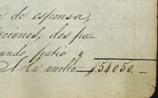 de esponsa,
ciones, dos pa
undo patio y
Ala vuelta $54050.-